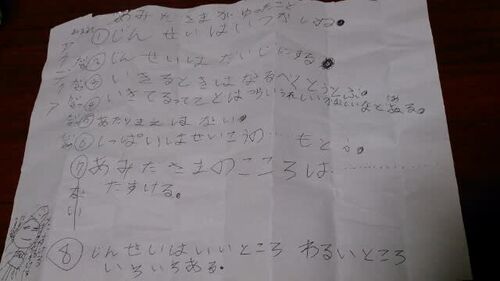 あみださまがゆったこと
①じんせいはいつかしぬ。
②じんせいはだいじにする
③いきるときはなるべくとうとぶ。
④いきてるってことはつらいうれしいかなしいなどある。
⑤あたりまえはない。
⑥しっぱいはせいこうの……もとだ。
⑦あみださまのこころは……………
たすける。
⑧じんせいはいいところ わるいところ
いろいろある。